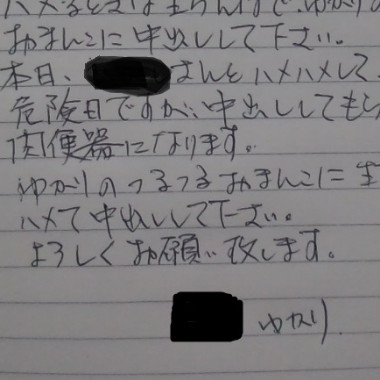 ハメるときは生ちんぽで、ゆかりの
おまんこに中出しして下さい。
本日、 さんとハメハメして
危険日ですが、中出ししてもら
肉便器になります。
ゆかりのつるつるおまんこに生
ハメで中出しして下さい。
よろしくお願い致します。
ゆかり